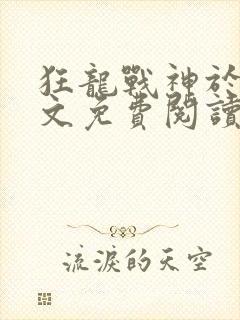 狂龍戰神於
文免費閱讀
流淚的天空